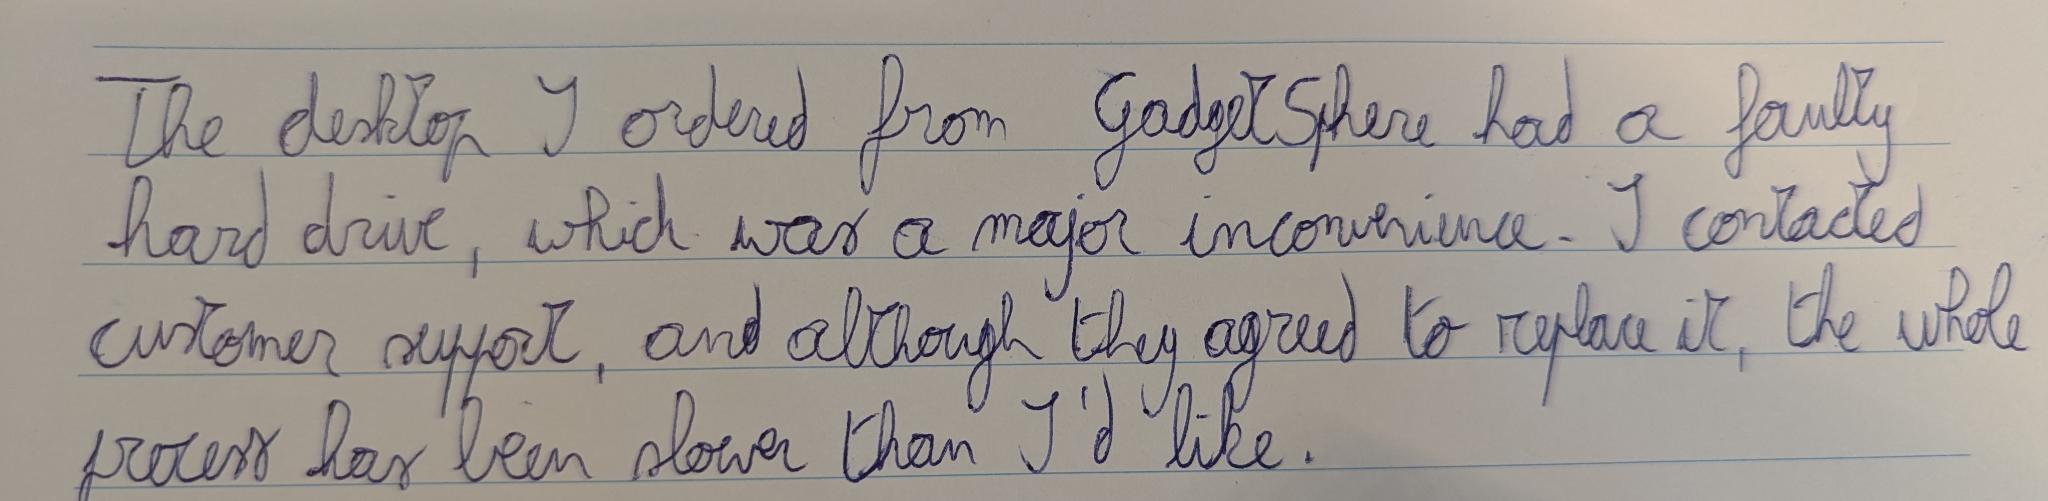 The desktop I ordered from GadgetSphere had a faulty
hard drive, which was a major inconvenience. I contacted
customer support, and although they agreed to replace it, the whole
process has been slower than I'd like.